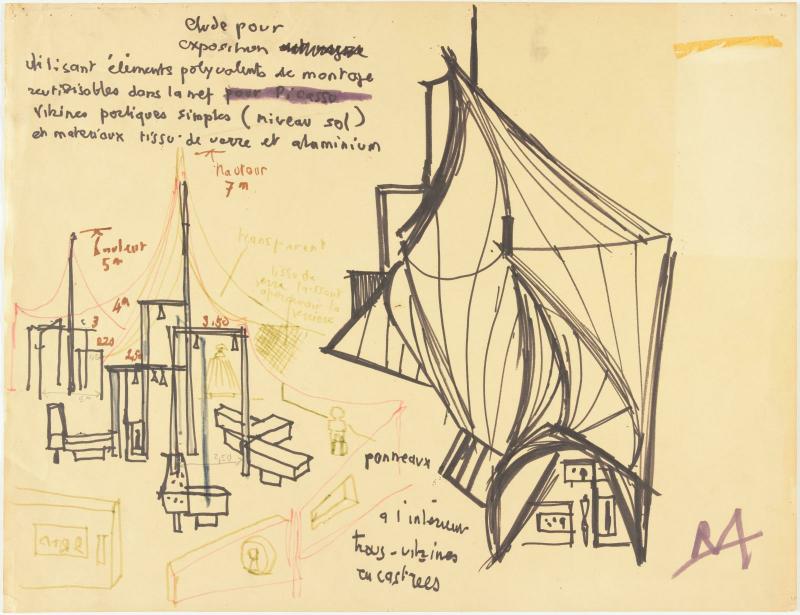 etude pour
exposition
utilisant éléments polyvalents de montage
reutilisables dans la nef pour Picasso
vitrines portiques simples (niveau sol)
en materiaux tissu de verre et aluminium
hauteur
7m
hauteur
5m
transparent
tissu de
verre laissant
apercevoir la
verriere
4m
3
3.50
220
2,50
2,50
panneaux
a l'intérieur
trous-vitrines
encastrees